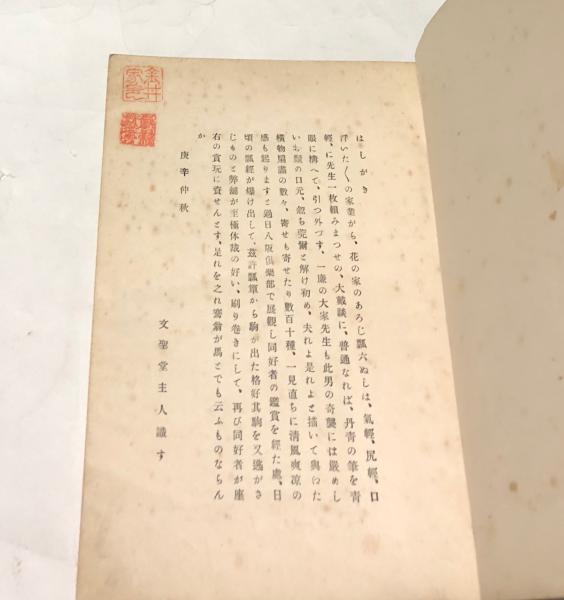 はしがき
浮いた〱の家業がら、花の家のあろじ瓢六ぬしは、氣輕、尻輕、口
輕、に先生一枚組みまつせの、大戴談に、普通なれば、丹青の筆を青
眼に構へて、引つ外づす、一廉の大家先生も此男の奇襲には嚴めし
い お髭の口元、忽ち莞爾と解け初め、夫れよ是れよと描いて與へた
橫物扇面の數々、寄せも寄せたり數百十種、一見直ちに清風爽凉の
感も起りますと過日八阪俱樂部で展觀し同好者の鑑賞を經た處、日
頃の瓢輕が爆け出して、茲許瓢簞から駒が出た格好其駒を又逃がさ
じものと弊舖が至極体裁の好い、刷り卷きにして、再び同好者が座
右の賞玩に資せんとす、是れを之れ塞翁が馬とでも云ふものならん
か
庚辛仲秋
文聖堂主人識す
金井